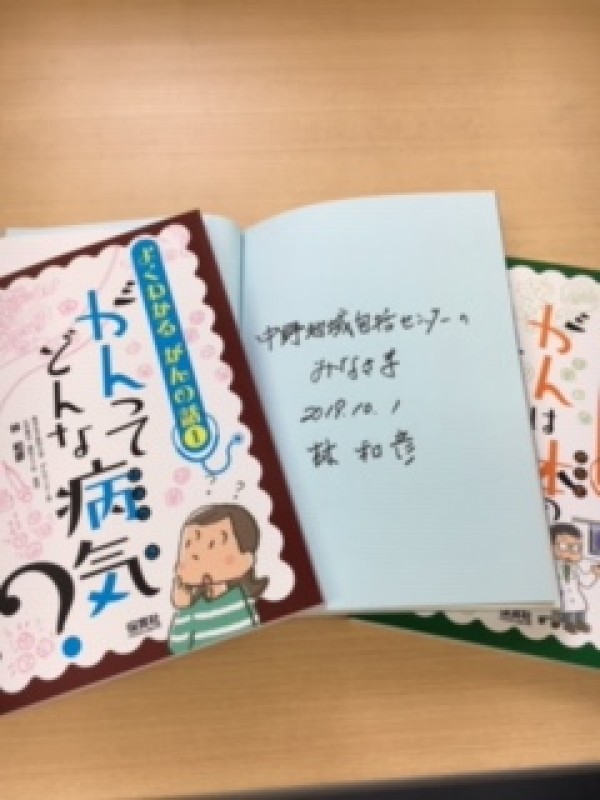 よくわかるがんの話1
がんって
どんな
病気
?
? ?
保育社
中野地域包括センターの
みなさま
2019.10.1
林 和彦
がんは